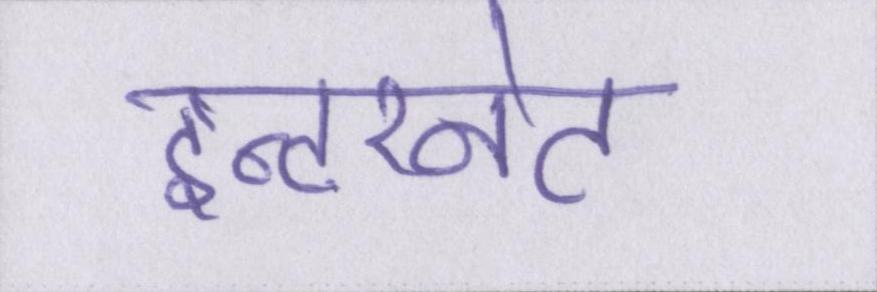 इन्टरनेट